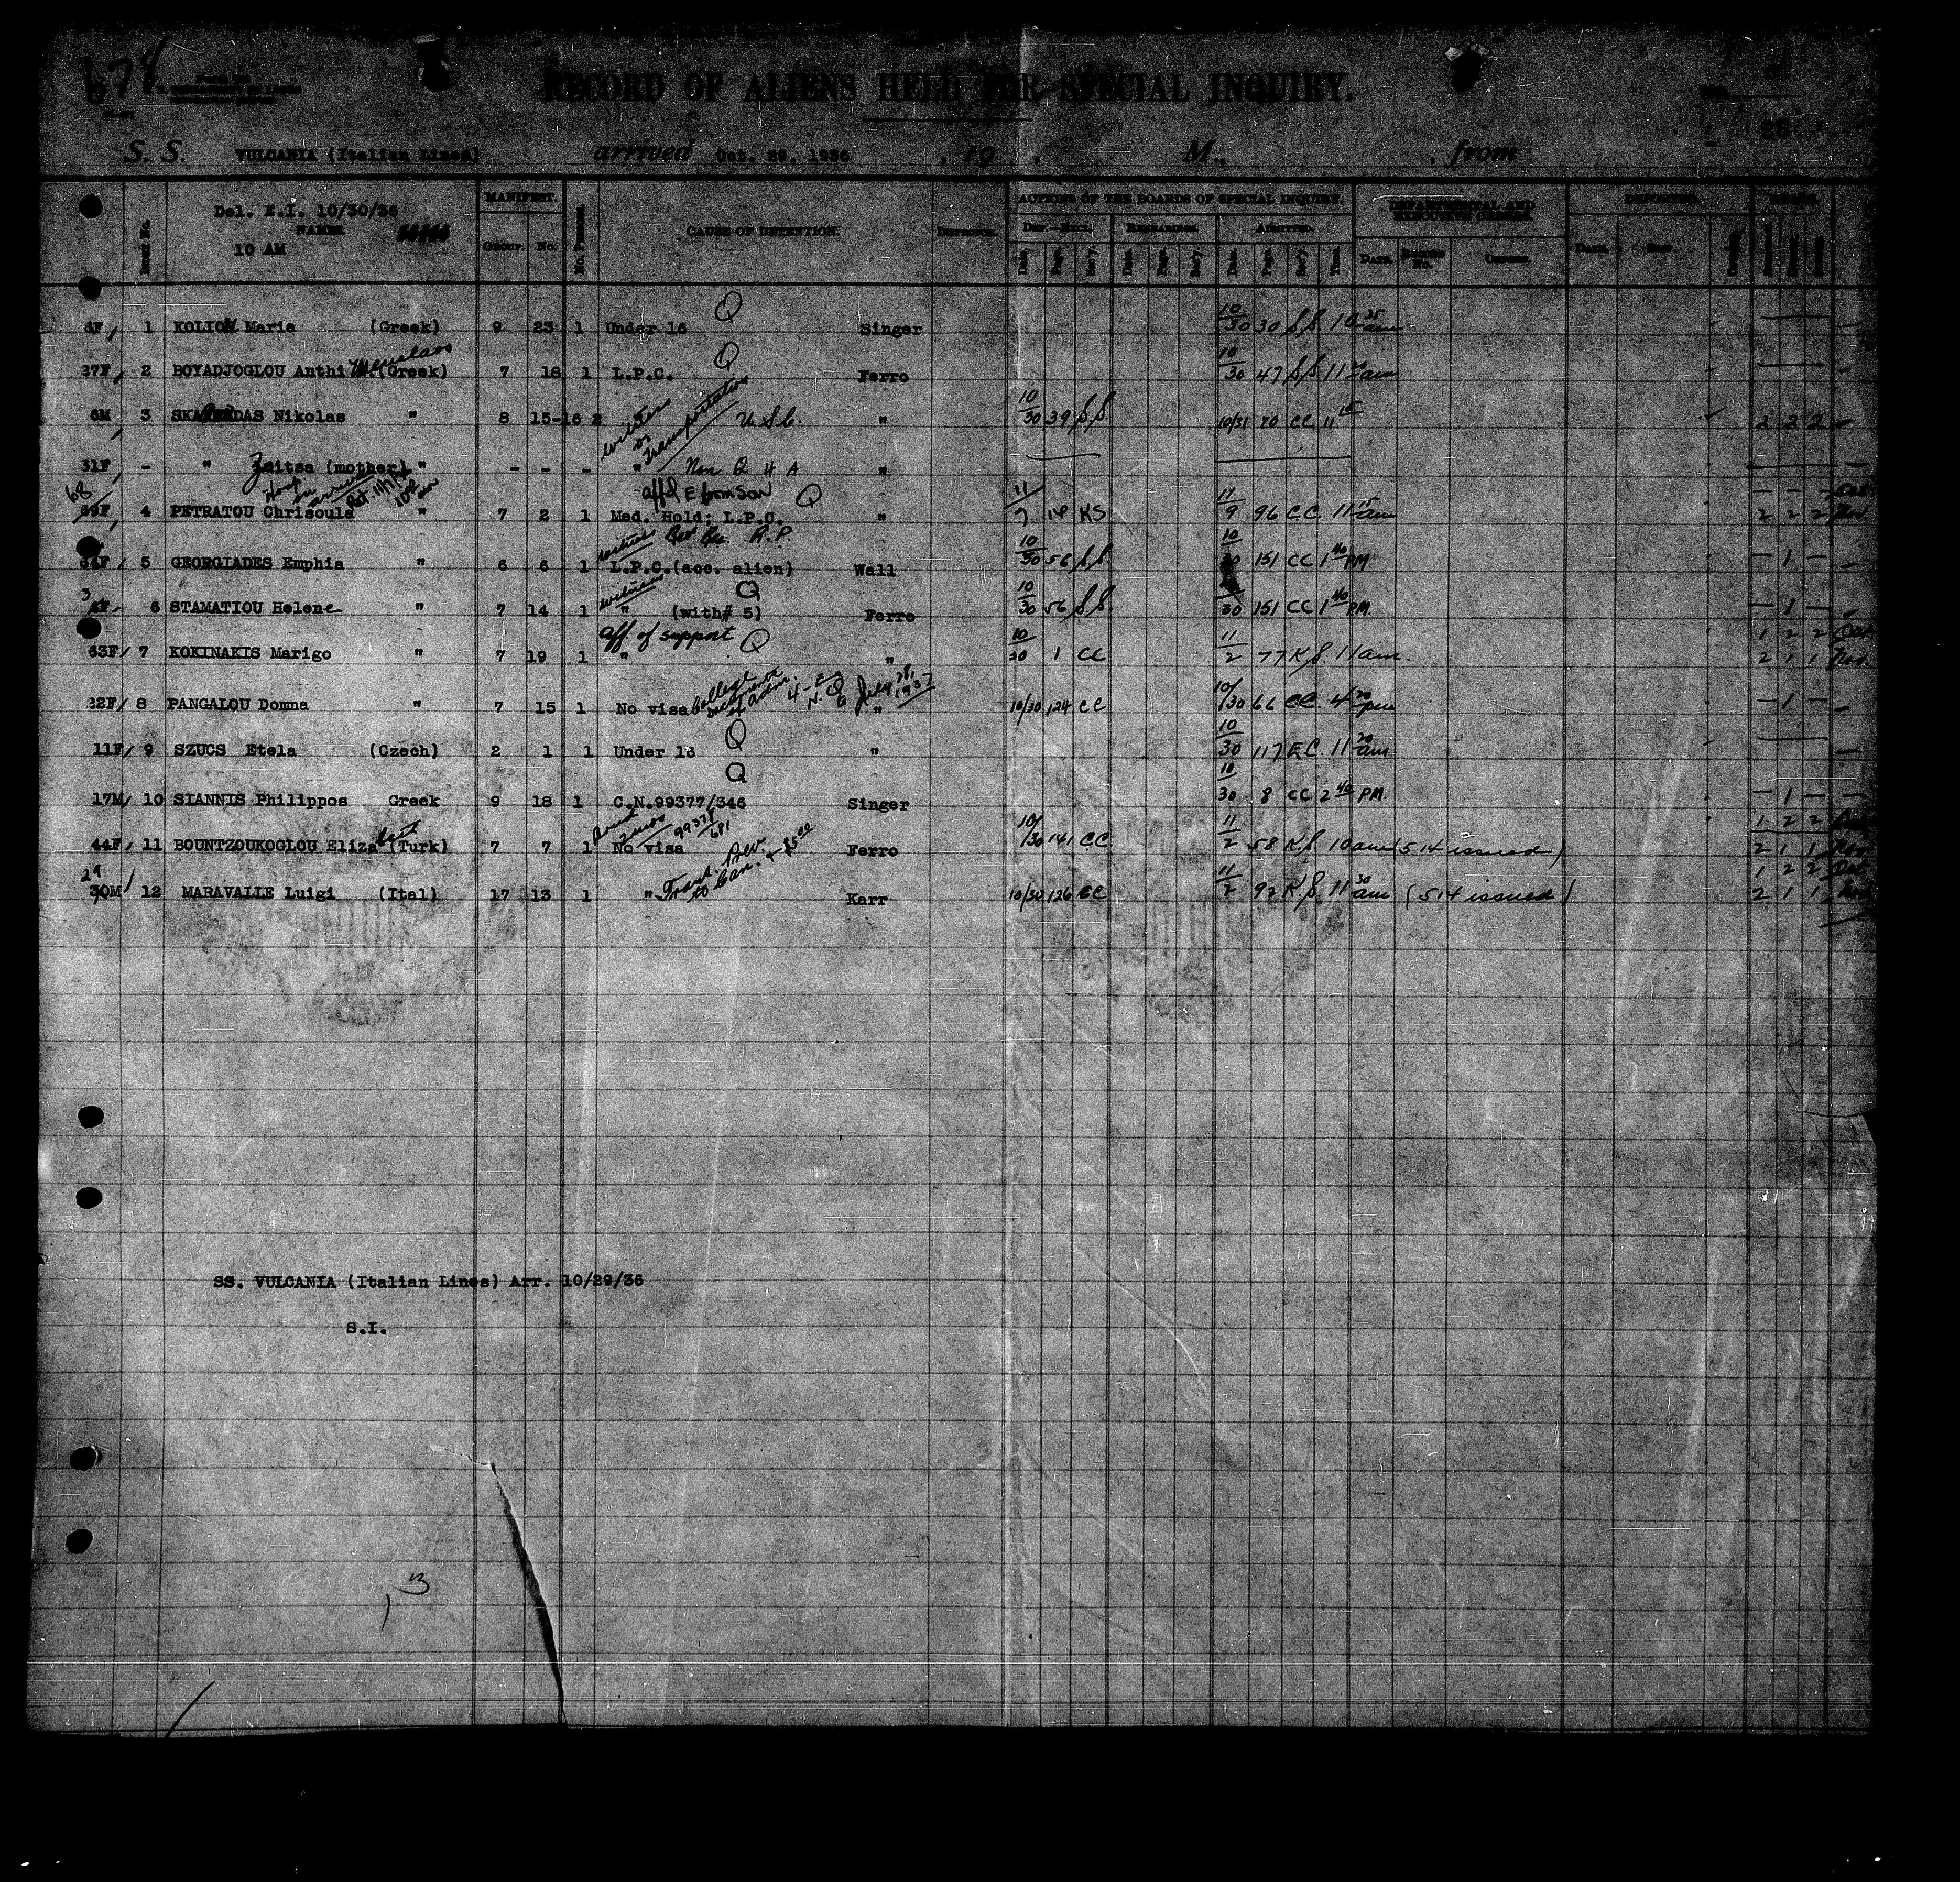 678
RECORD OF ALIENS HELD FOR SPECIAL INQUIRY.
S. S. VULCANIA (Italian Lines) arrived Oct. 29, 1936 , 19 . M., , from
Del. E.I. 10/30/36
10 AM
NAMES
MANIFEST. GROUP. No.
CAUSE OF DETENTION.
INSPECTOR.
ACTIONS OF THE BOARDS OF SPECIAL INQUIRY.
DEF.—EXCL. REHEARINGS. ADMITTED.
Date. Page. Sec'y. Date. Page. Sec'y. Date. Page. Sec'y. Time.
DEPARTMENTAL AND EXECUTIVE ORDERS.
DATE. ORDER.
DEPORTED.
DATE.
1 KOLIOU Maria (Greek) 9 23 1 Under 16 Q Singer 10/30 30 SS 10 25 am
37F 2 BOYADJOGLOU Anthi (Greek) 7 18 1 L.P.C. Q Ferro 10/30 47 SS 11 am
6M 3 Nikolas " 8 15-16 2 witness or Transportation U.S.C. " 10/30 39 SS 10/31 70 CC 11 2 2 2
31F - " Zoitsa (mother) " - - - " Non Q "
68 4 PETRATOU Chrisoula " 7 2 1 Med. Hold: L.P.C. Q " 11/7 14 KS 11/9 96 CC 11 15 am 2 2 2 Nov
5 GEORGIADES Emphia " 6 6 1 witness L.P.C. (acc. alien) R.P. Wall 10/30 56 SS 10/30 151 CC 1 40 PM - 1 -
3 6 STAMATIOU Helene " 7 14 1 witness " (with# 5) Q Ferro 10/30 56 SS 30 151 CC 1 40 PM - 1 -
63F 7 KOKINAKIS Marigo " 7 19 1 aff of support " Q " 10/30 1 CC 11/2 77 KS 11 am 1 2 2 Oct 2 1 1 Nov.
22F 8 PANGALOU Domna " 7 15 1 No visa College documents of adm. 4-E July 1937 " 10/30 124 CC 10/30 66 CC 4 20 pm - 1 -
11F 9 SZUCS Etela (Czech) 2 1 1 Under 16 Q " 10/30 117 EC 11 20 am
17M 10 SIANNIS Philippos Greek 9 18 1 C.N.99377/346 Q Singer 10/30 8 CC 2 40 PM - 1 -
44F 11 BOUNTZOUKOGLOU Eliza (Turk) 7 7 1 No visa 99378/681 Ferro 10/30 141 CC 11/2 58 KS 10 am (514 issued) 1 2 2 2 1 1
29 30M 12 MARAVALLE Luigi (Ital) 17 13 1 " Karr 10/30 126 CC 11/2 92 KS 11 30 am (514 issued) 1 2 2 2 1 1
SS. VULCANIA (Italian Lines) Arr. 10/29/36
S.I.
13